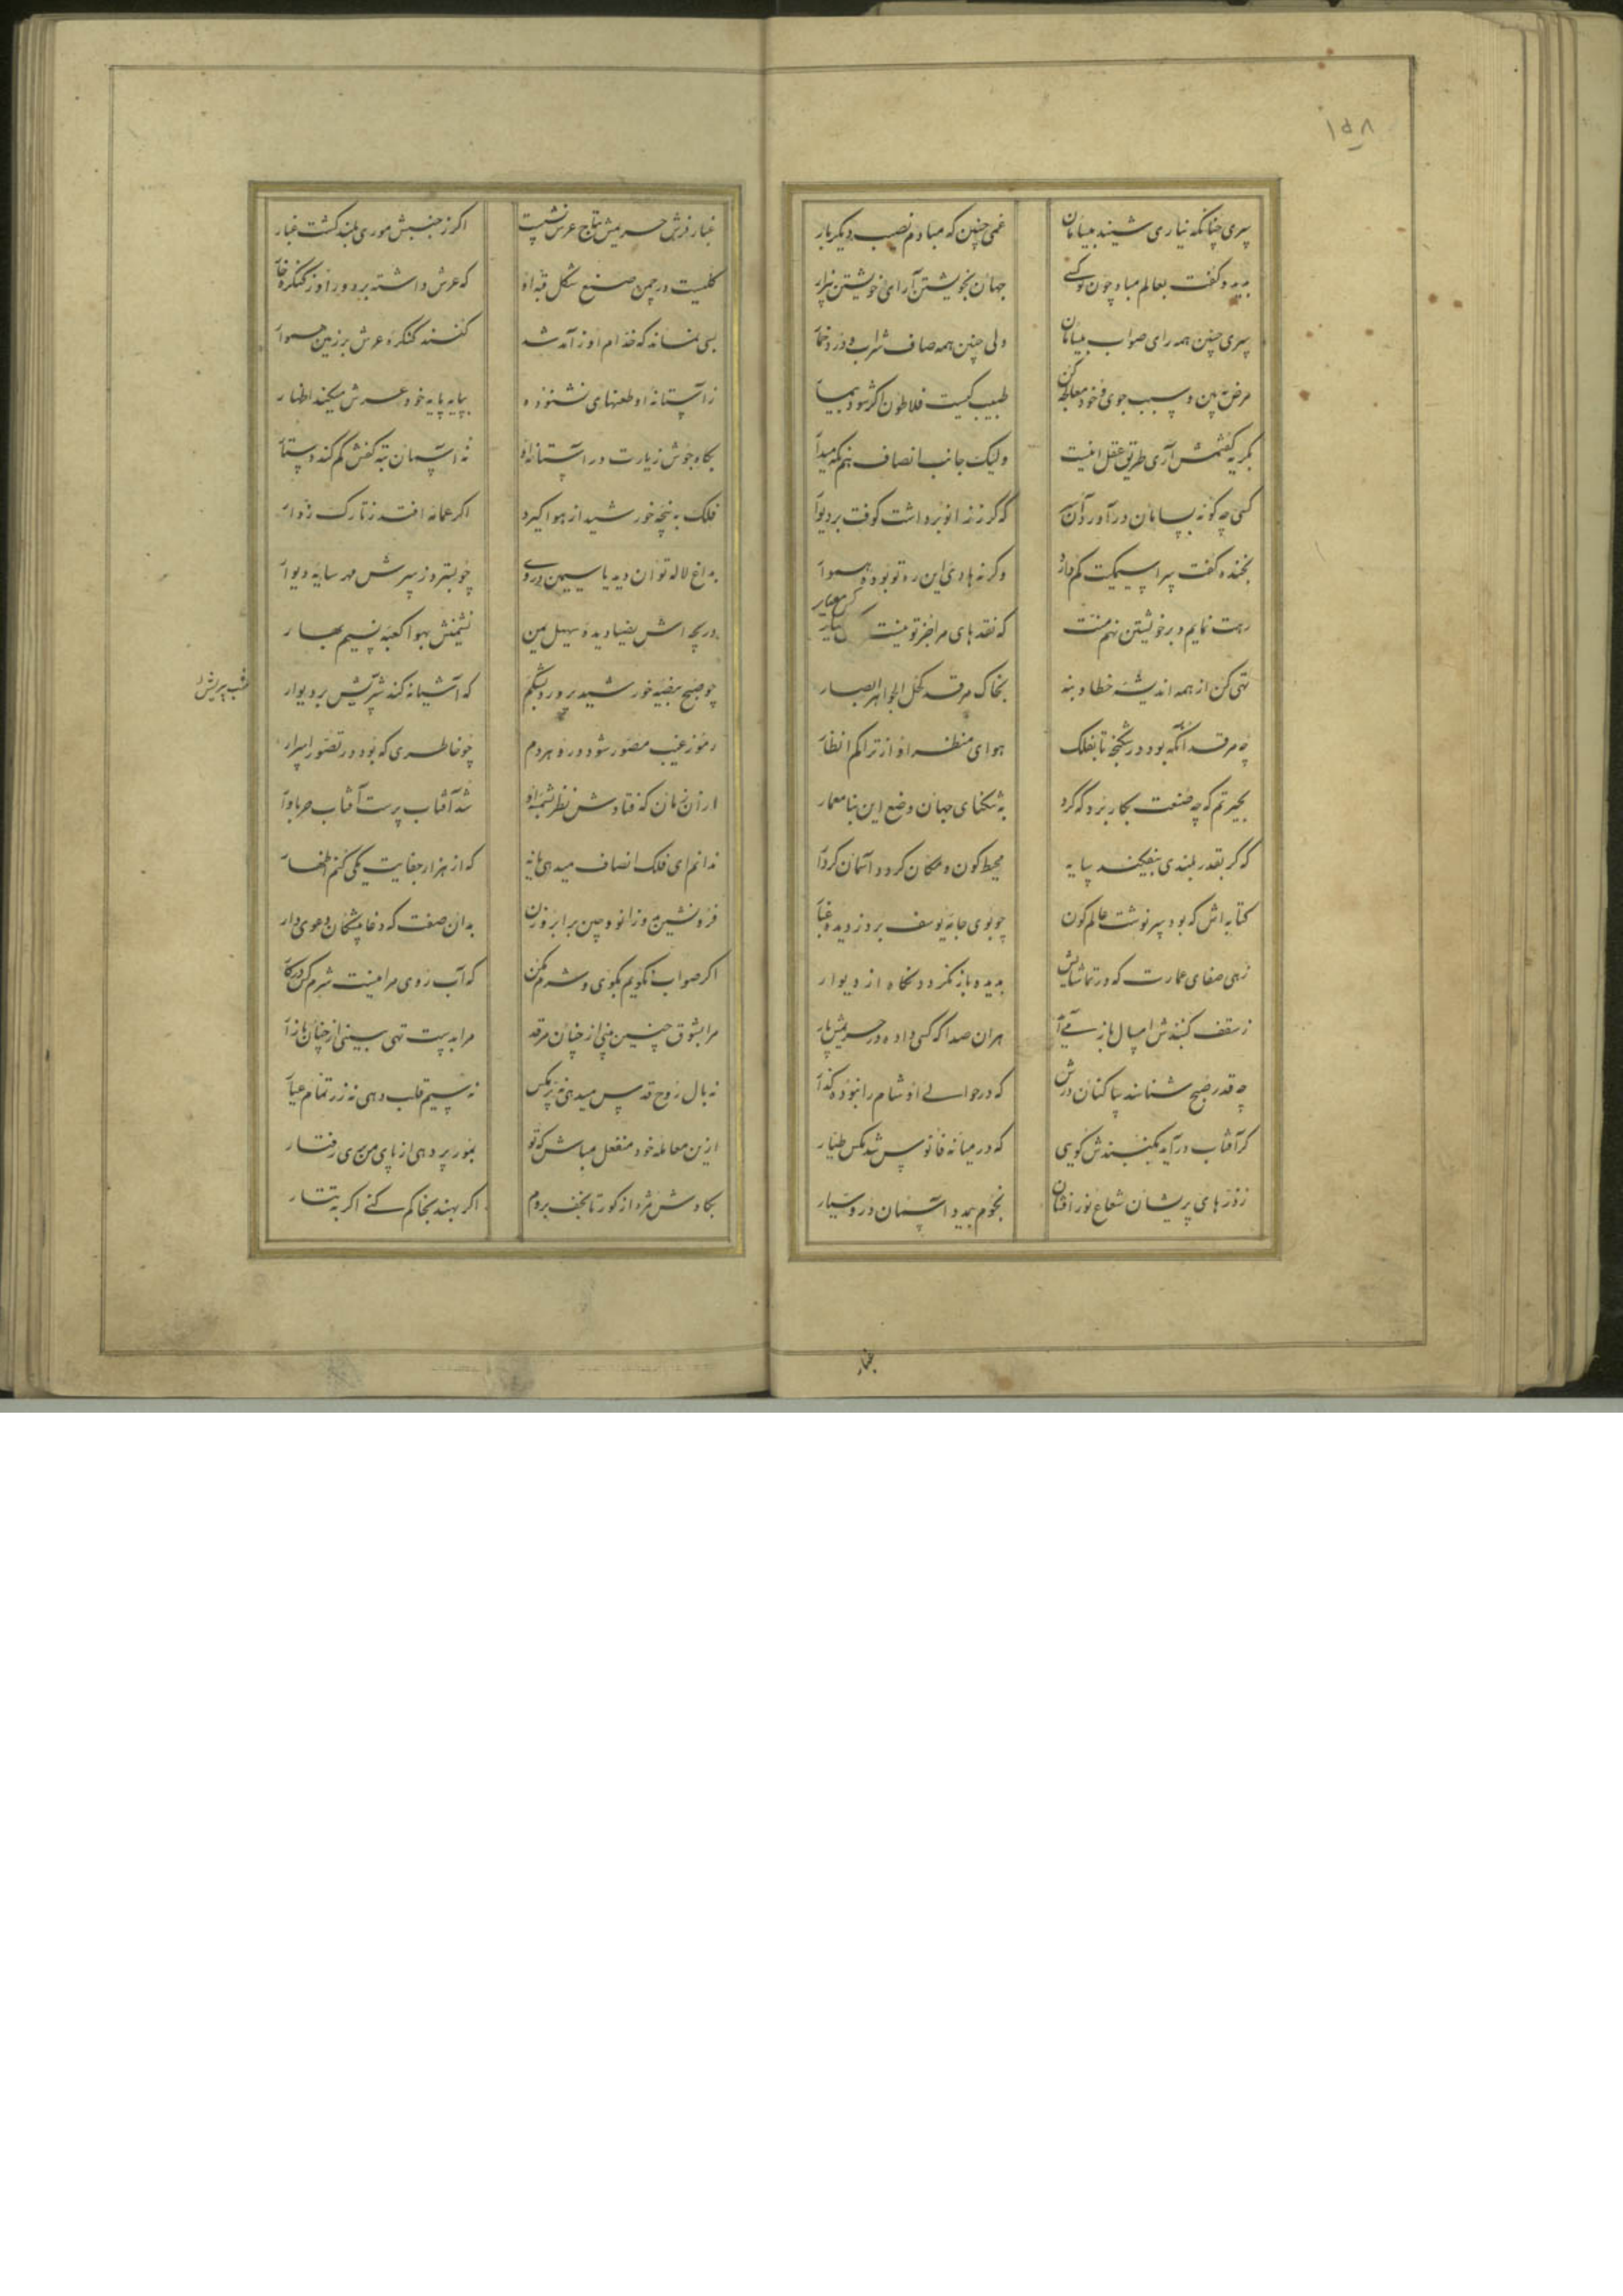 ۱۵۸
سری چنانکه نیاری شنید بیسامان غمی چنین که مبادم نصیب دیگر بار
بدید و گفت بعالم مباد چون تو کسی جهان بخویشتن آرای و خویشتن بیزار
سری چنین همه رای صواب بیسامان ولی چنین همه صاف شراب و درد خمار
مرض ببین و سبب جوی و خود معالجه کن طبیب کیست فلاطون اگر شود بیمار
بگریه گفتمش آری طریق عقل اینست ولیک جانب انصاف هم نگه میدار
کسی چه گونه بسامان درآورد آن سر که گر ز زانو برداشت کوفت بر دیوار
بخنده گفت سراسیمگیت گم دارد وگرنه هادی این ره تو بوده هموار
رهت نمایم و بر خویشتن نهم منت که نقدهای مرا جز تو نیست کس معیار
تهی کن از همه اندیشه خطا و بنه بخاک مرقد کحل الجواهر ابصار
چه مرقد آنکه بود در شکنجه تا بفلک هوای منظر او از تراکم انظار
بحیرتم که چه صنعت بکار برد که کرد به تنگنای جهان وضع این بنا معمار
که گر بقدر بلندی بیفکند سایه محیط کون و مکان گردد آسمان کردار
کتابه اش که بود سرنوشت عالم کون چو بوی جامه یوسف برد ز دیده غبار
زهی صفای عمارت که در تماشایش بدیده باز نگردد نگاه از دیوار
ز سقف گنبدش امسال باز می آید هران صدا که کسی داده در حریمش پار
چه قدر صبح شناسند ساکنان درش که در حوالی او شام را نبوده گذار
گر آفتاب درآید بگنبدش گویی که در میانه فانوس شد مگس طیار
ز ذرهای پریشان شعاع نور افشان نجوم بیند و آسمان درو سیار
غبار
غبار فرش حریمش بتاج عرش نشست اگر ز جنبش موری بلند گشت غبار
گلیست در چمن صنع شکل قبه او که عرش داشته بر دور او ز کنگره خار
بسی نماند که خدام او ز آمد شد کنند کنگره عرش بر زمین هموار
ز آستانه او طعنهای نشنوده بپایه پایه خود عرش میکند اظهار
بگاه جوش زیارت در آستانه او نه آسمان ته کفش گم کند دستار
فلک به پنجه خورشید از هوا گیرد اگر عمامه افتد ز تارک زوار
بداغ لاله توان دید یاسمین در وی چو بسترد ز سرش مهر سایه دیوار
دریچه اش بضیا دیده سهیل یمن نشیمنش بهوا کعبه نسیم بهار
چو صبح بیضه خورشید پرورد بشکم که آشیانه کند شب پریش بر دیوار
شب پریش را
رموز غیب مصور شود درو هر دم چو خاطری که بود در تصور اسرار
از آن زمان که فتادش نظر بشمسه او شد آفتاب پرست آفتاب حرباوار
ندانم ای فلک انصاف میدهی یا نه که از هزار جفایت یکی کنم اظهار
فرو نشین دو زانو و چین بر ابرو زن بدان صفت که دغا پیشگان دعوی دار
اگر صواب نگویم بگوی و شرم مکن که آب روی مرا نیست شرم کس درکار
مرا بشوق چنین بینی از چنان مرقد مرا بدست تهی بینی از چنان بازار
نه بال روح قدس میدهی نه پر مگس نه سیم قلب دهی نه زر تمام عیار
ازین معامله خود منفعل مباش که تو بمور پر دهی از پای من بری رفتار
بکاوش مژه از گور تا نجف بروم اگر بهند بخاکم کنی اگر به تتار